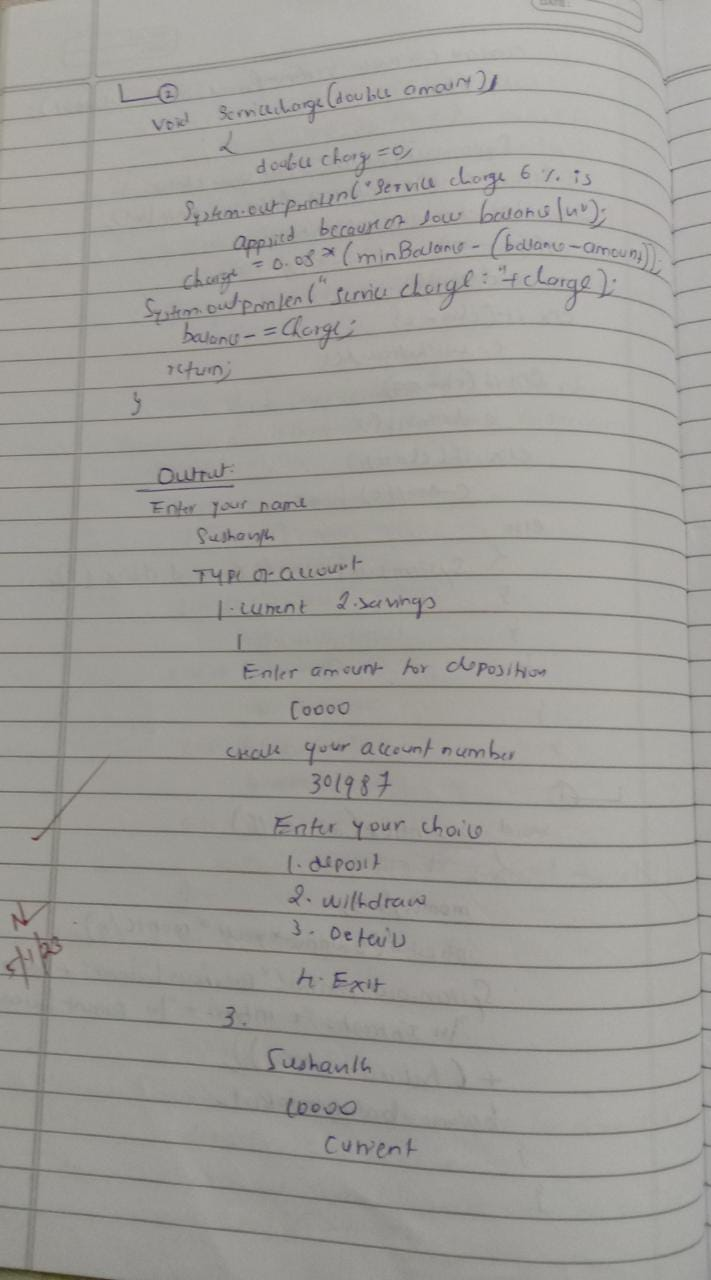 2
void servicecharge(double amount)
{
double charg = 0;
System.out.println("Service charge 6 % is
applied because of low balance \n");
charge = 0.08 * (minBalance - (balance - amount));
System.out.println("service charge : "+charge);
balance -= charge;
return;
}
Output:
Enter your name
Sushanth
Type of account
1. current 2. savings
1
Enter amount for deposition
10000
create your account number
301987
Enter your choice
1. deposit
2. withdraw
3. Details
4. Exit
3.
Sushanth
10000
Current